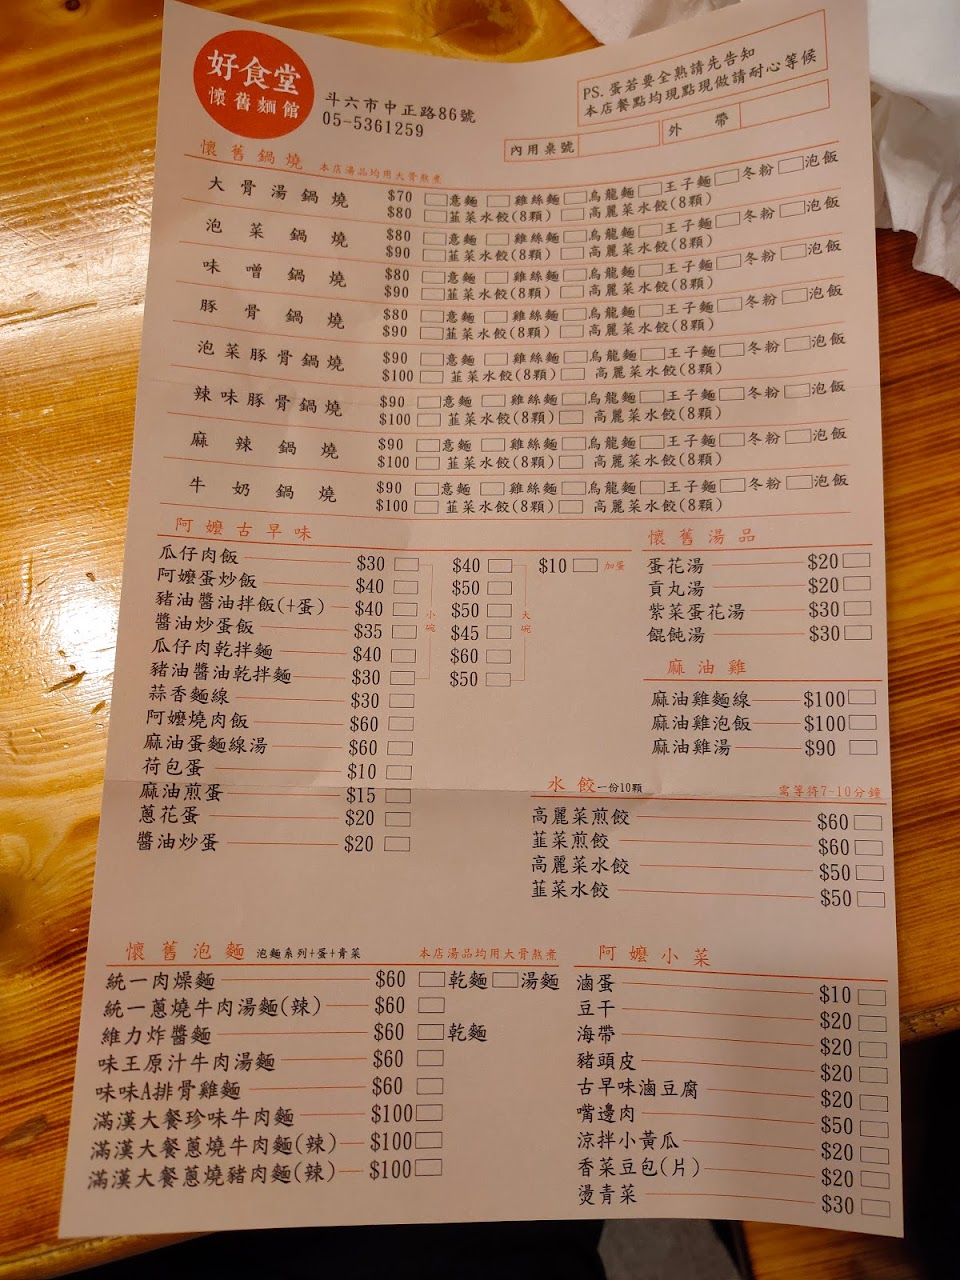 好食堂
懷舊麵館
斗六市中正路86號
05-5361259
PS. 蛋若要全熟請先告知
本店餐點均現點現做請耐心等候
內用桌號
外帶
懷舊鍋燒 本店湯品均用大骨熬煮
大骨湯鍋燒 $70 意麵 雞絲麵 烏龍麵 王子麵 冬粉 泡飯
$80 韮菜水餃(8顆) 高麗菜水餃(8顆)
泡菜鍋燒 $80 意麵 雞絲麵 烏龍麵 王子麵 冬粉 泡飯
$90 韮菜水餃(8顆) 高麗菜水餃(8顆)
味噌鍋燒 $80 意麵 雞絲麵 烏龍麵 王子麵 冬粉 泡飯
$90 韮菜水餃(8顆) 高麗菜水餃(8顆)
豚骨鍋燒 $80 意麵 雞絲麵 烏龍麵 王子麵 冬粉 泡飯
$90 韮菜水餃(8顆) 高麗菜水餃(8顆)
泡菜豚骨鍋燒 $90 意麵 雞絲麵 烏龍麵 王子麵 冬粉 泡飯
$100 韮菜水餃(8顆) 高麗菜水餃(8顆)
辣味豚骨鍋燒 $90 意麵 雞絲麵 烏龍麵 王子麵 冬粉 泡飯
$100 韮菜水餃(8顆) 高麗菜水餃(8顆)
麻辣鍋燒 $90 意麵 雞絲麵 烏龍麵 王子麵 冬粉 泡飯
$100 韮菜水餃(8顆) 高麗菜水餃(8顆)
牛奶鍋燒 $90 意麵 雞絲麵 烏龍麵 王子麵 冬粉 泡飯
$100 韮菜水餃(8顆) 高麗菜水餃(8顆)
阿嬤古早味
瓜仔肉飯 $30 $40 $10 加蛋
阿嬤蛋炒飯 $40 $50
豬油醬油拌飯(+蛋) $40 $50
醬油炒蛋飯 $35 $45
瓜仔肉乾拌麵 $40 $60
豬油醬油乾拌麵 $30 $50
小碗
大碗
蒜香麵線 $30
阿嬤燒肉飯 $60
麻油蛋麵線湯 $60
荷包蛋 $10
麻油煎蛋 $15
蔥花蛋 $20
醬油炒蛋 $20
懷舊湯品
蛋花湯 $20
貢丸湯 $20
紫菜蛋花湯 $30
餛飩湯 $30
麻油雞
麻油雞麵線 $100
麻油雞泡飯 $100
麻油雞湯 $90
水餃 一份10顆 需等待7-10分鐘
高麗菜煎餃 $60
韮菜煎餃 $60
高麗菜水餃 $50
韮菜水餃 $50
懷舊泡麵 泡麵系列+蛋+青菜 本店湯品均用大骨熬煮
統一肉燥麵 $60 乾麵 湯麵
統一蔥燒牛肉湯麵(辣) $60
維力炸醬麵 $60 乾麵
味王原汁牛肉湯麵 $60
味味A排骨雞麵 $60
滿漢大餐珍味牛肉麵 $100
滿漢大餐蔥燒牛肉麵(辣) $100
滿漢大餐蔥燒豬肉麵(辣) $100
阿嬤小菜
滷蛋 $10
豆干 $20
海帶 $20
豬頭皮 $20
古早味滷豆腐 $20
嘴邊肉 $50
涼拌小黃瓜 $20
香菜豆包(片) $20
燙青菜 $30